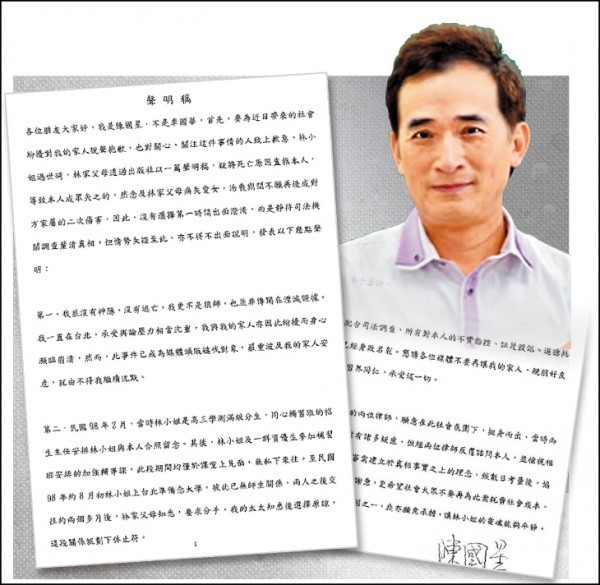 聲明稿
各位朋友大家好，我是陳國星，不是李國華，首先，要為近日帶來的社會
紛擾對我的家人說聲抱歉，也對關心、關注這件事情的人致上歉意，林小
姐過世時，林家父母透過出版社以一篇聲明稿，疑將死亡原因直指本人，
等致本人成眾矢之的，然念及林家父母痛失愛女，治喪期間不願再造成對
方家屬的二次傷害，因此，沒有選擇第一時間出面澄清，而是靜待司法機
關調查釐清真相，但情勢失控至此，亦不得不出面說明，發表以下幾點聲
明：
第一，我並沒有神隱，沒有逃亡，我更不是狼師，也並非傳聞在湮滅證據，
我一直在台北，承受輿論壓力相當沈重，我與我的家人亦因此紛擾而身心
瀕臨崩潰，然而，此事件已成為媒體頭版追伐對象，嚴重波及我的家人安
危，就由不得我繼續沉默。
第二，民國 98 年 2 月，當時林小姐是高三學測滿級分生，同心橋習班的招
生主任安排林小姐與本人合照留念。其後，林小姐及一群資優生參加補習
班安排的加強輔導課，此段期間均僅於課堂上見面，無私下來往。至民國
98 年約 8 月初林小姐上台北準備念大學，彼此已無師生關係，兩人之後交
往約兩個多月後，林家父母知悉，要求分手，我的太太知悉後選擇原諒，
這段關係就劃下休止符。
1
配合司法調查，所有對本人的不實指控、
已經身敗名裂，懇請各位媒體不要再讓我的家人、親朋好友
習界同仁，承受這一切。
的兩位律師，願意在此社會氛圍下，挺身而出，當時兩
有諸多疑慮，但經兩位律師反覆詰問本人，並檢視相
當實建立於真相事實之上的理念，經數日考量後，
謝意，更希望社會大眾不要再為此案耗費社會成本。
因之一，我亦願意承擔，讓林小姐的靈魂能夠平靜。
陳國星